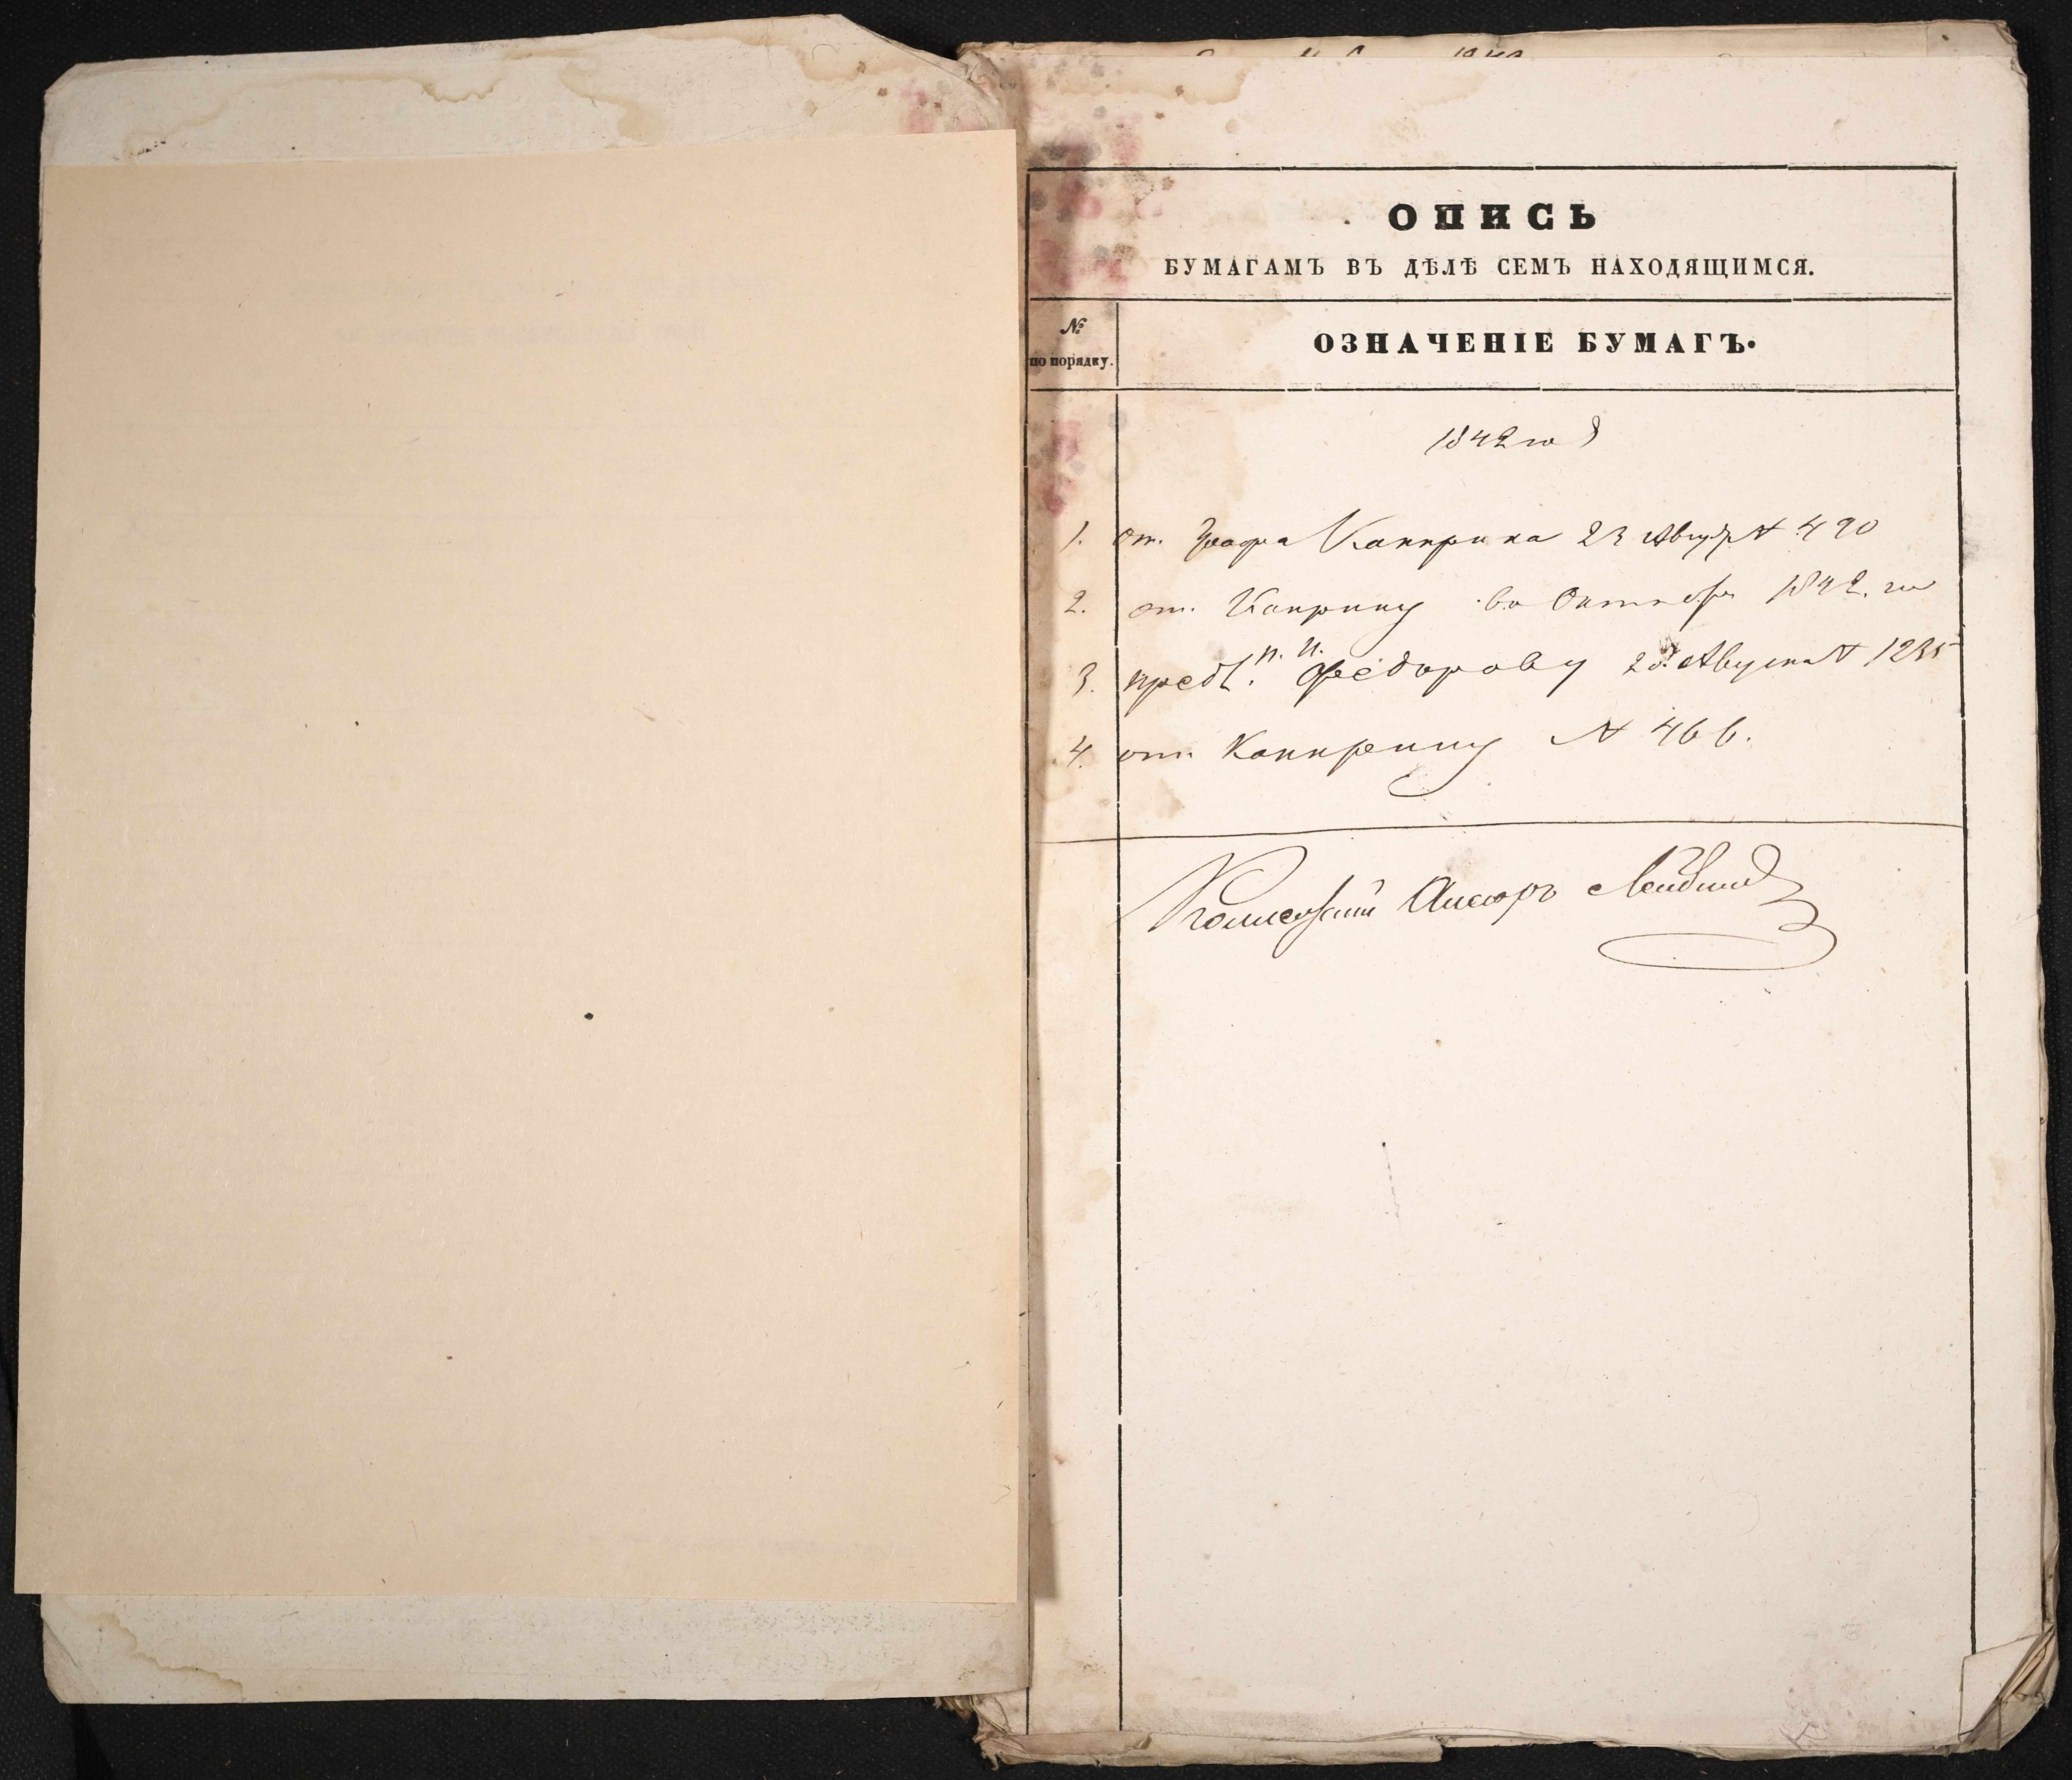 ОПИСЬ
БУМАГАМЪ ВЪ ДѢЛѢ СЕМЪ НАХОДЯЩИМСЯ.
№
по порядку.
ОЗНАЧЕНІЕ БУМАГЪ.
1842 год
1. от. Графа Канкрина 23 Август N 490
2. от. Канкрину во Октябре 1842. го
3. предп. П. И. Федорову 28 Августа N 1235
4. от. Канкрину N 466.
Коллежский Асесоръ